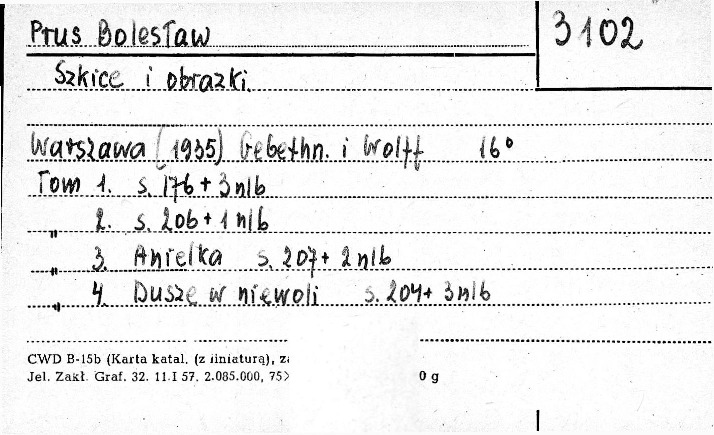 Prus Bolesław 3102
Szkice i obrazki
Warszawa (1935) Gebethn. i Wolff 16°
Tom 1. s. 176 + 3 nlb
„ 2. s. 206 + 1 nlb
„ 3. Anielka s. 207 + 2 nlb
„ 4. Dusze w niewoli s. 204 + 3 nlb
CWD B-15b (Karta katal. (z liniaturą), z
Jel. Zakł. Graf. 32. 11.I 57. 2.085.000, 75 0 g